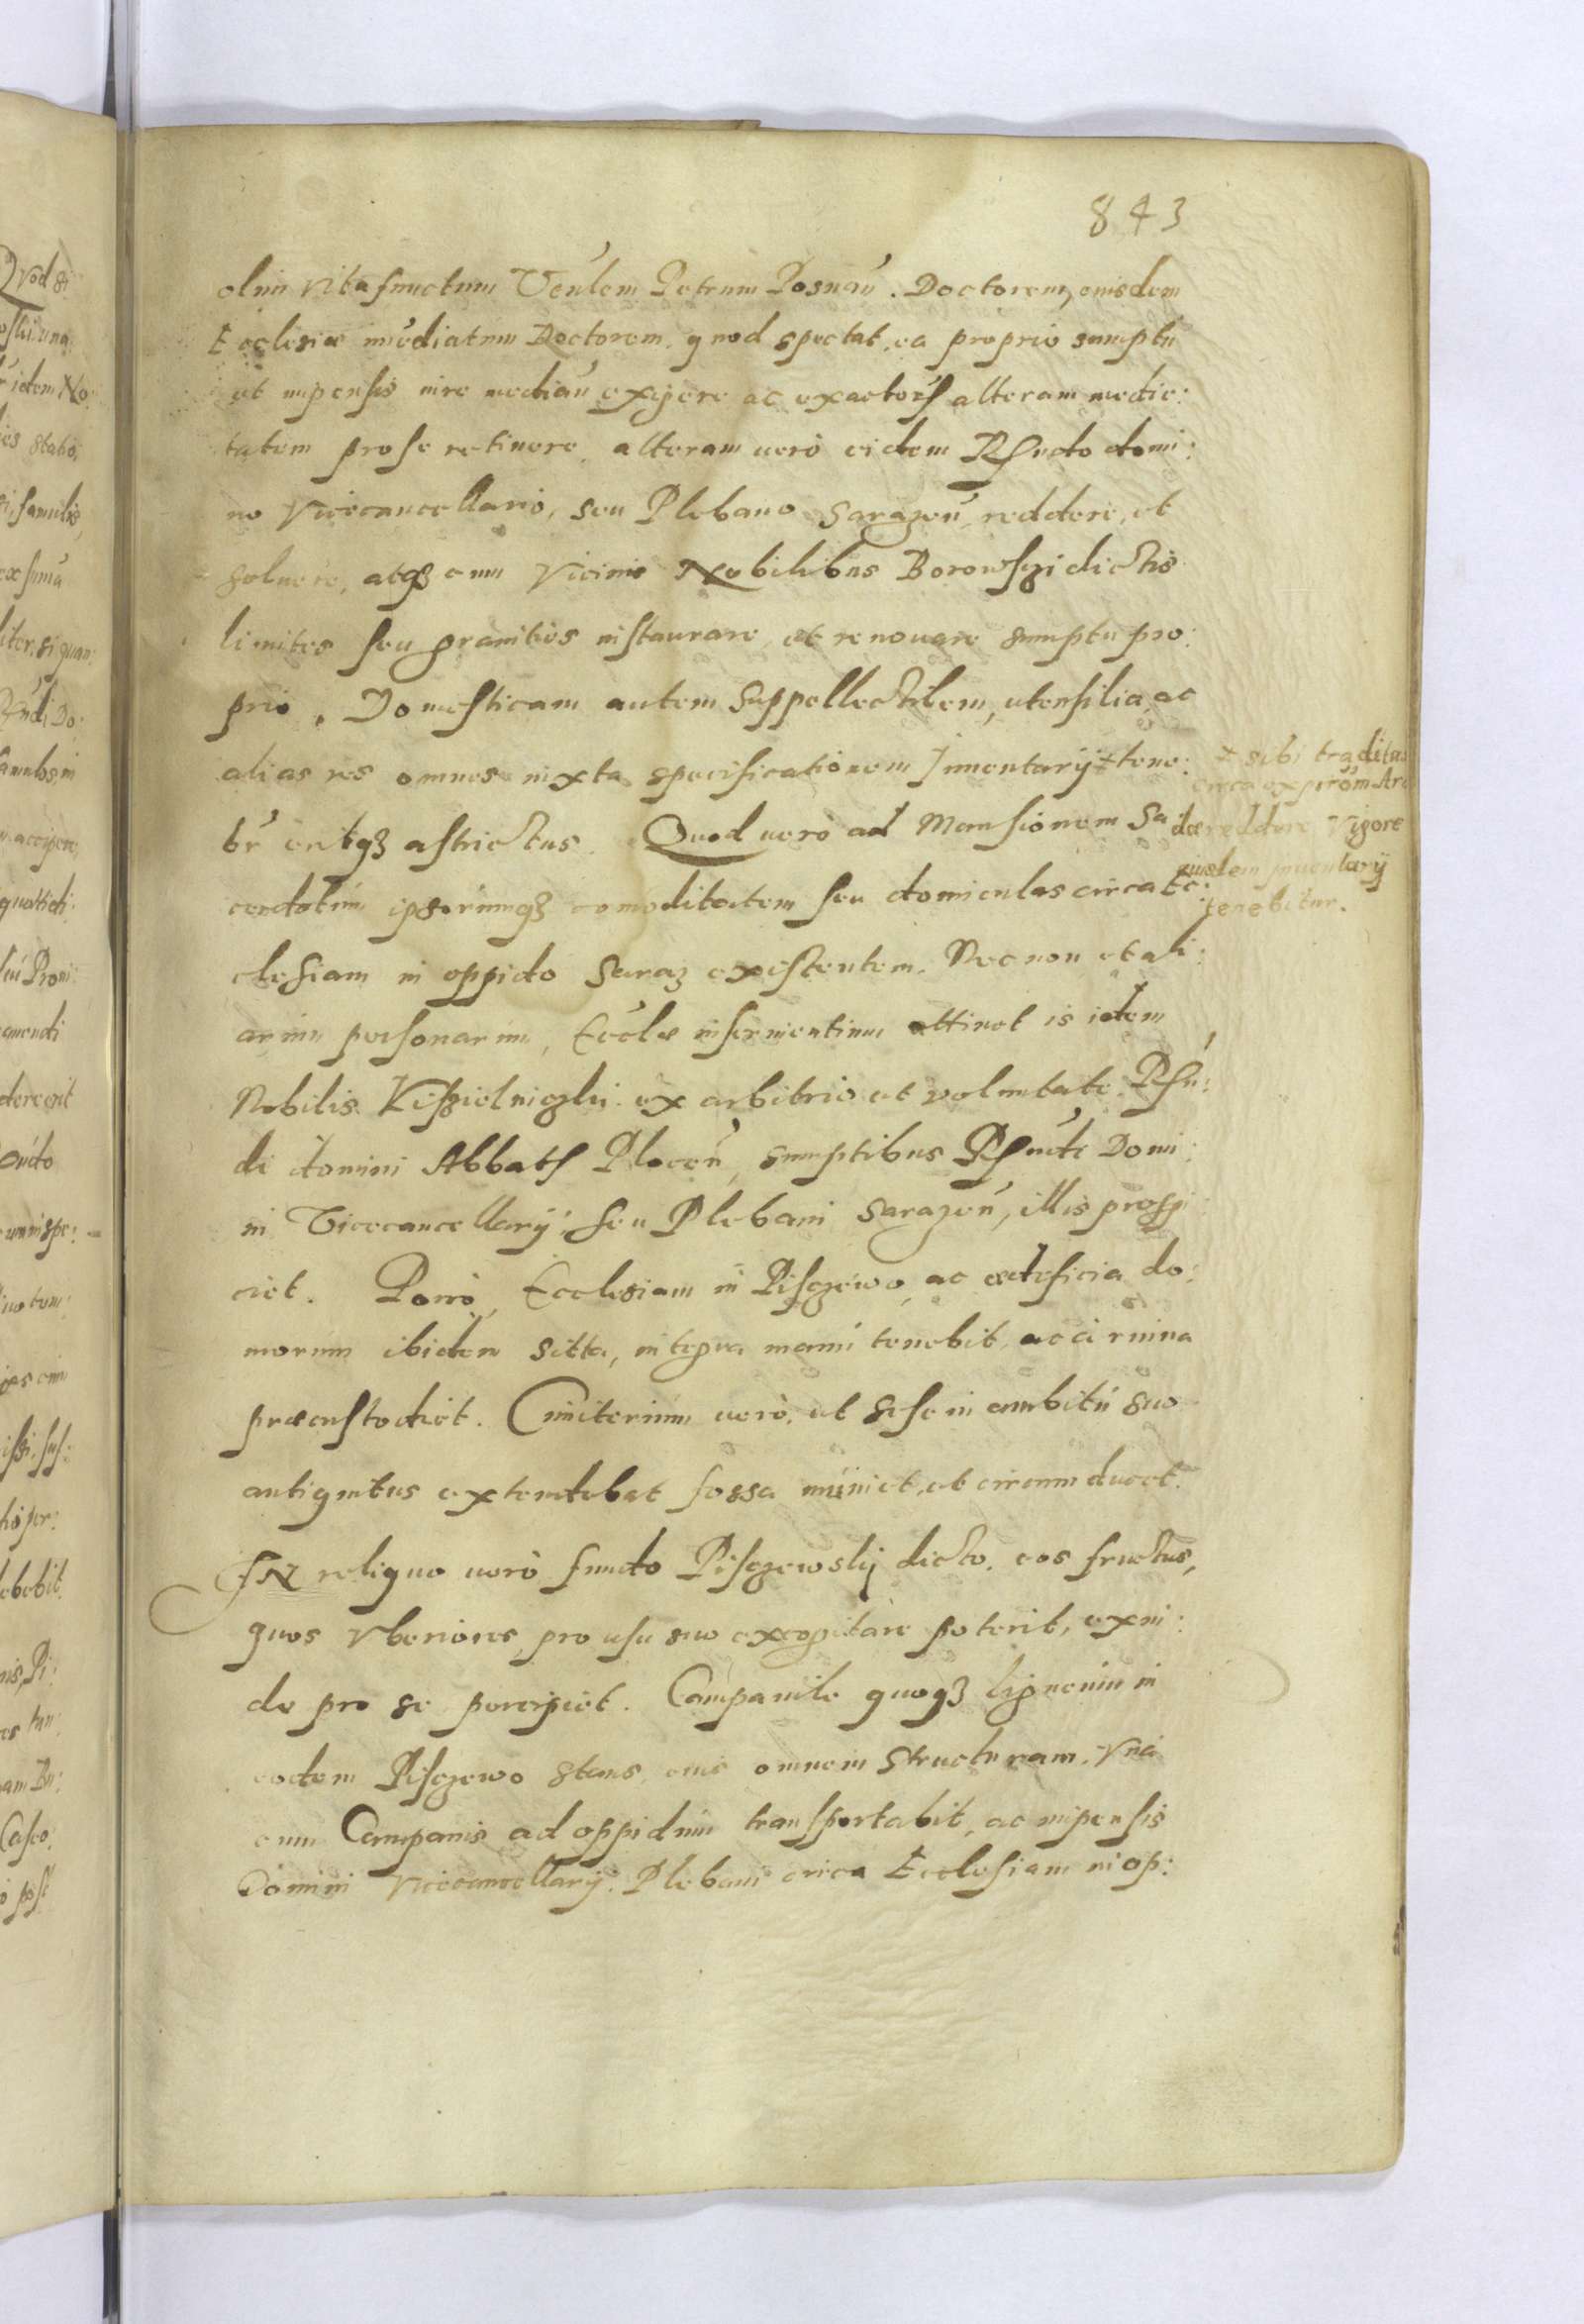 843
olim vita functum Venlem Petrum Posnan̄. Doctorem, eiusdem
Ecclesiæ im̄ediatum Rectorem, quod spectat, ea proprio sumptu
et impensis iure median̄ exigere ac exactor̄ alteram medie:
tatem pro se retinere, alteram uerò eidem Rſndo domi:
no Vicecancellario, seu Plebano Sarazen̄ reddere, et
soluere, atqз cum Vicinis Nobilibus Borowſzi dictis
limites seu granities inſtaurare, et renouare sumptu pro:
prio. Domeſticam autem Suppellectilem, utenſilia, ac
alias res omnes iuxta specificationem Inuentarij + tene:
br̄ eritqз aſtrictus. Quod uerò ad Manſionem Sa
cerdotum ipsorumqз com̄oditatem ſeu domiculas circa Ec:
cleſiam in oppido Saraz exiſtentem. Necnon et ali:
arum perſonarum, Eccl̄æ inſeruientium attinet is idem
Nobilis Kiſzielniczki ex arbitrio et voluntate Rſn:
di domini Abbatis Plocen̄, sumptibus Rſndi Domi:
ni Vicecancellarij, ſeu Plebani Sarazen̄, illis proſpi
ciet. Porrò, Ecclesiam in Piſczewo, ac ædificia do:
morum ibidem sitta, integra manu tenebit, ac à ruina
præcuſtodiet. Cimiterium uerò, ut seſe in ambitu suo
antiquitus extendebat foſsa muniet, et circumducet.
IN reliquo uerò fundo Piſczewſkij dicto, eos fructus,
quos vberiores, pro uſu suo excogitare poterit, exin:
de pro se percipiet. Campanile quoqз ligneum in
eodem Piſczewo stans, eius omnem Structuram, vna
cum Campanis ad oppidum tranſportabit, ac impenſis
Domini Vicecancellarij, Plebani circa Eccleſiam in op:
+ sibi traditas
circa expirōm Aren
dæ reddere Vigore
eiusdem inuentarij
tenebitur.